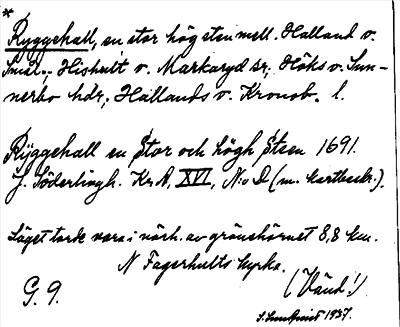 *
Ryggehall, en stor hög sten mell. Halland o.
Smål., Hishult o. Markaryd sr, Höks o. Sun-
nerbo hdr, Hallands o. Kronob. l.
Rÿggehall en Stor och högh Steen 1691.
J. Söderlingh. Kr.A, XVI, N:o (m. kartbeskr.).
Läget torde vara i närh. av gränshörnet 8,8 km.
N Fagerhults kyrka.
G. 9.
(Vänd!)
S. Lundquist 1937.